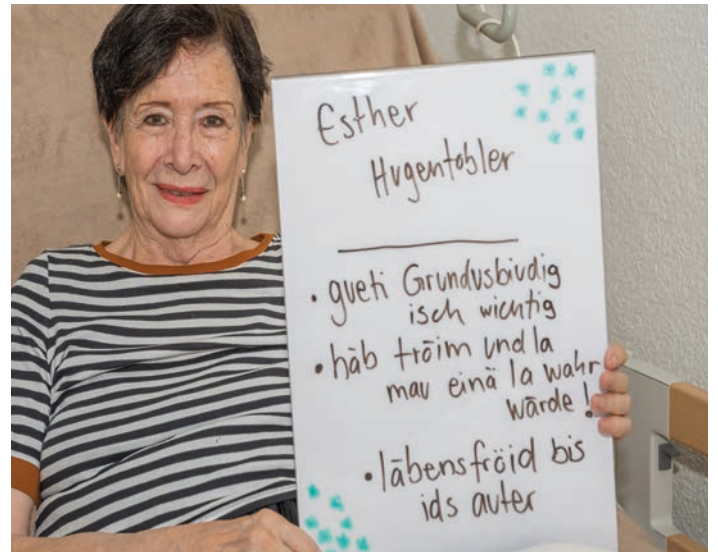 Esther
Hugentobler
• gueti Grundusbiudig
isch wichtig
• häb tröim und la
mau einä la wahr
wärde!
• läbensfröid bis
ids auter